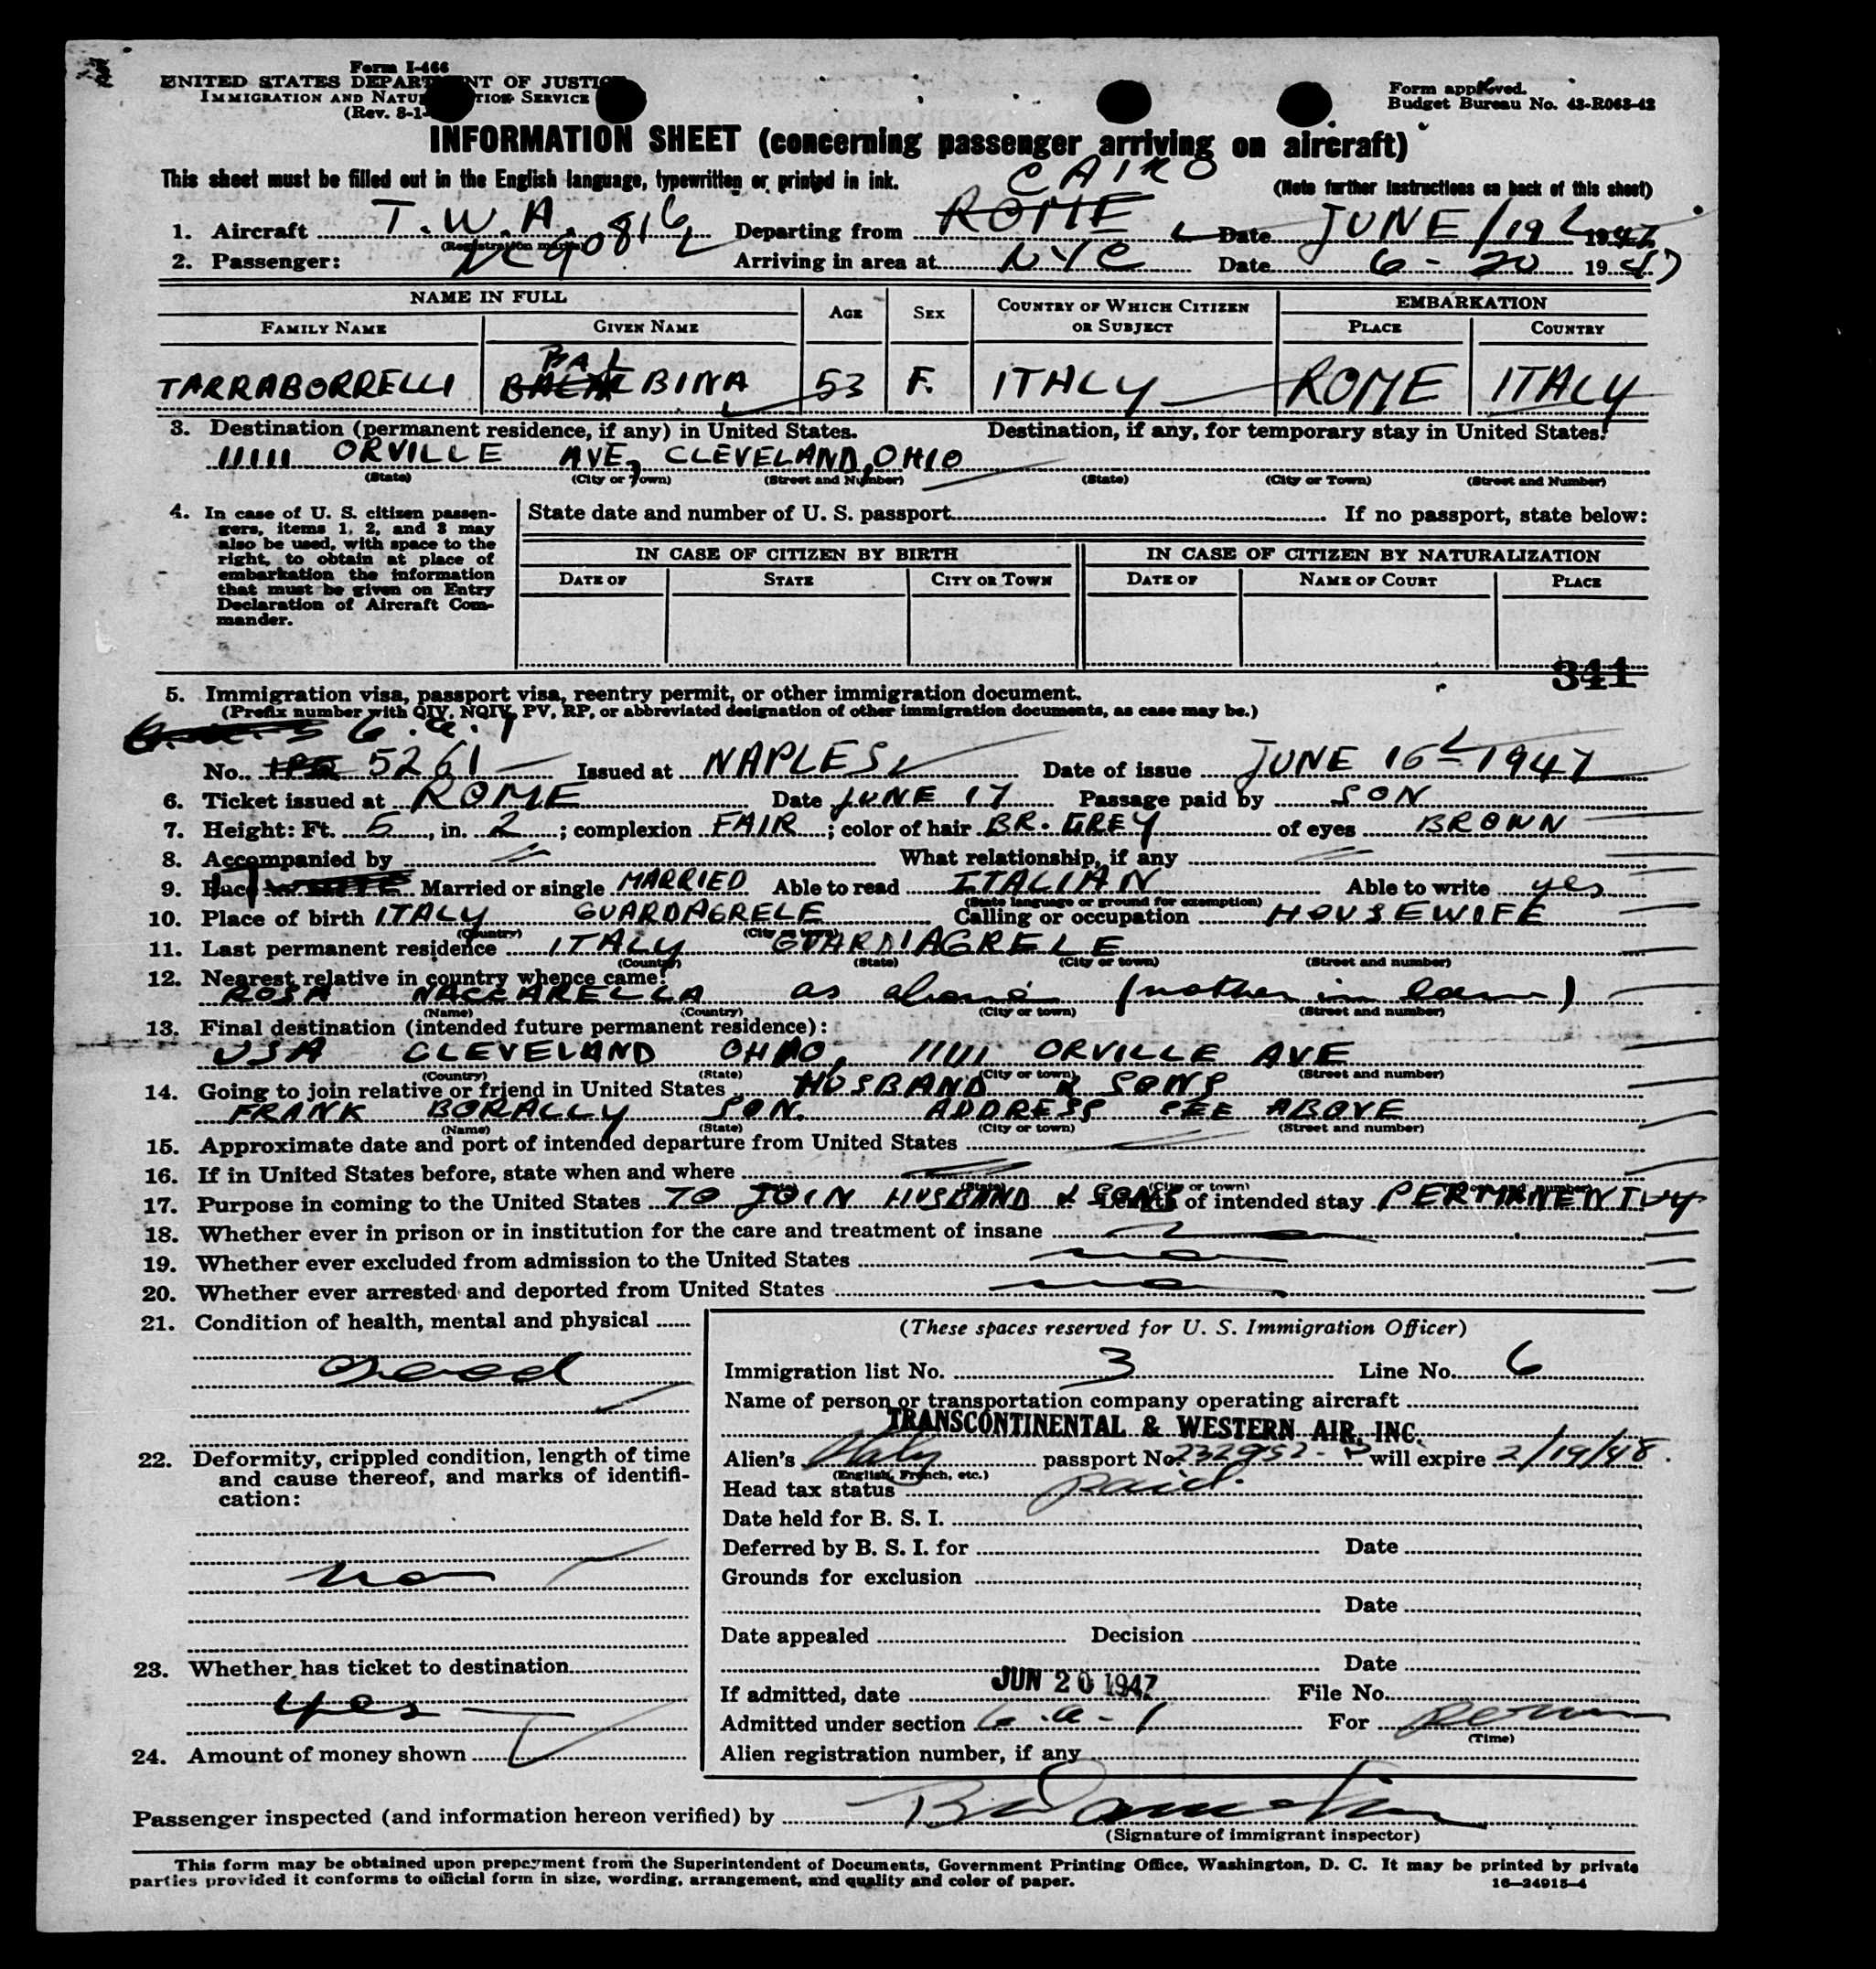 Form I-466
UNITED STATES DEPARTMENT OF JUSTICE
IMMIGRATION AND NATU TION SERVICE
(Rev. 8-1-
Form approved.
Budget Bureau No. 43-R063-42
INFORMATION SHEET (concerning passenger arriving on aircraft)
This sheet must be filled out in the English language, typewritten or printed in ink.
CAIRO
(Note further instructions on back of this sheet)
1. Aircraft T.W.A. 816 Departing from ROME Date JUNE/19 1947
(Registration marks)
NC90816
2. Passenger: Arriving in area at NYC Date 6-20 1947
NAME IN FULL AGE SEX COUNTRY OF WHICH CITIZEN OR SUBJECT EMBARKATION
FAMILY NAME GIVEN NAME PLACE COUNTRY
BAL
TARRABORRELLI BINA 53 F. ITALY ROME ITALY
3. Destination (permanent residence, if any) in United States. Destination, if any, for temporary stay in United States.
11111 ORVILLE AVE, CLEVELAND, OHIO
(State) (City or Town) (Street and Number) (State) (City or Town) (Street and Number)
4. In case of U. S. citizen passengers, items 1, 2, and 3 may
also be used, with space to the
right, to obtain at place of
embarkation the information
that must be given on Entry
Declaration of Aircraft Commander.
State date and number of U. S. passport If no passport, state below:
IN CASE OF CITIZEN BY BIRTH IN CASE OF CITIZEN BY NATURALIZATION
DATE OF STATE CITY OR TOWN DATE OF NAME OF COURT PLACE
341
5. Immigration visa, passport visa, reentry permit, or other immigration document.
(Prefix number with QIV, NQIV, PV, RP, or abbreviated designation of other immigration documents, as case may be.)
6.a.1
No. 5261 Issued at NAPLES Date of issue JUNE 16 1947
6. Ticket issued at ROME Date JUNE 17 Passage paid by SON
7. Height: Ft. 5, in. 2; complexion FAIR; color of hair BR. GREY of eyes BROWN
8. Accompanied by What relationship, if any
9. Race WHITE Married or single MARRIED Able to read ITALIAN Able to write yes
(State language or ground for exemption)
10. Place of birth ITALY GUARDAGRELE Calling or occupation HOUSEWIFE
(Country) (City or town)
11. Last permanent residence ITALY GUARDIAGRELE
(Country) (State) (City or town) (Street and number)
12. Nearest relative in country whence came:
ROSA NACCARELLA as above (mother in law)
(Name) (Country) (City or town) (Street and number)
13. Final destination (intended future permanent residence):
USA CLEVELAND OHIO, 11111 ORVILLE AVE
(Country) (State) (City or town) (Street and number)
14. Going to join relative or friend in United States HUSBAND & SONS
FRANK BORALLY SON. ADDRESS SEE ABOVE
(Name) (State) (City or town) (Street and number)
15. Approximate date and port of intended departure from United States
16. If in United States before, state when and where
(State) (City or town) (Street and number)
17. Purpose in coming to the United States TO JOIN HUSBAND & SONS Length of intended stay PERMANENTLY
18. Whether ever in prison or in institution for the care and treatment of insane no
19. Whether ever excluded from admission to the United States no
20. Whether ever arrested and deported from United States no
21. Condition of health, mental and physical
Good
22. Deformity, crippled condition, length of time
and cause thereof, and marks of identification:
no
23. Whether has ticket to destination
yes
24. Amount of money shown
(These spaces reserved for U. S. Immigration Officer)
Immigration list No. 3 Line No. 6
Name of person or transportation company operating aircraft
TRANSCONTINENTAL & WESTERN AIR, INC.
Alien's Italy passport No. 232952-P will expire 2/19/48.
(English, French, etc.)
Head tax status paid.
Date held for B. S. I.
Deferred by B. S. I. for Date
Grounds for exclusion
Date
Date appealed Decision
Date
If admitted, date JUN 20 1947 File No.
Admitted under section 6.a-1 For perm
(Time)
Alien registration number, if any
Passenger inspected (and information hereon verified) by
(Signature of immigrant inspector)
This form may be obtained upon prepayment from the Superintendent of Documents, Government Printing Office, Washington, D. C. It may be printed by private
parties provided it conforms to official form in size, wording, arrangement, and quality and color of paper.
16—24915-4